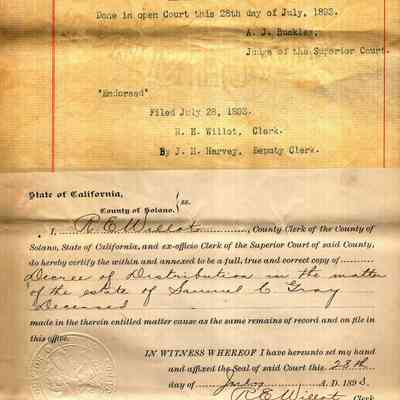 Done in open Court this 28th day of July, 1893.
A. J. Buckles,
Judge of the Superior Court.
"Endorsed"
Filed July 28, 1893.
R. E. Willot, Clerk.
By J. H. Harvey, Deputy Clerk.
State of California,
County of Solano. } ss.
I, R E Willot, County Clerk of the County of
Solano, State of California, and ex-officio Clerk of the Superior Court of said County,
do hereby certify the within and annexed to be a full, true and correct copy of
Decree of Distribution in the matter
of the estate of Samuel C. Gray
Deceased
made in the therein entitled matter cause as the same remains of record and on file in
this office.
IN WITNESS WHEREOF I have hereunto set my hand
and affixed the Seal of said Court this 28th
day of July A. D. 1893.
R E Willot Clerk